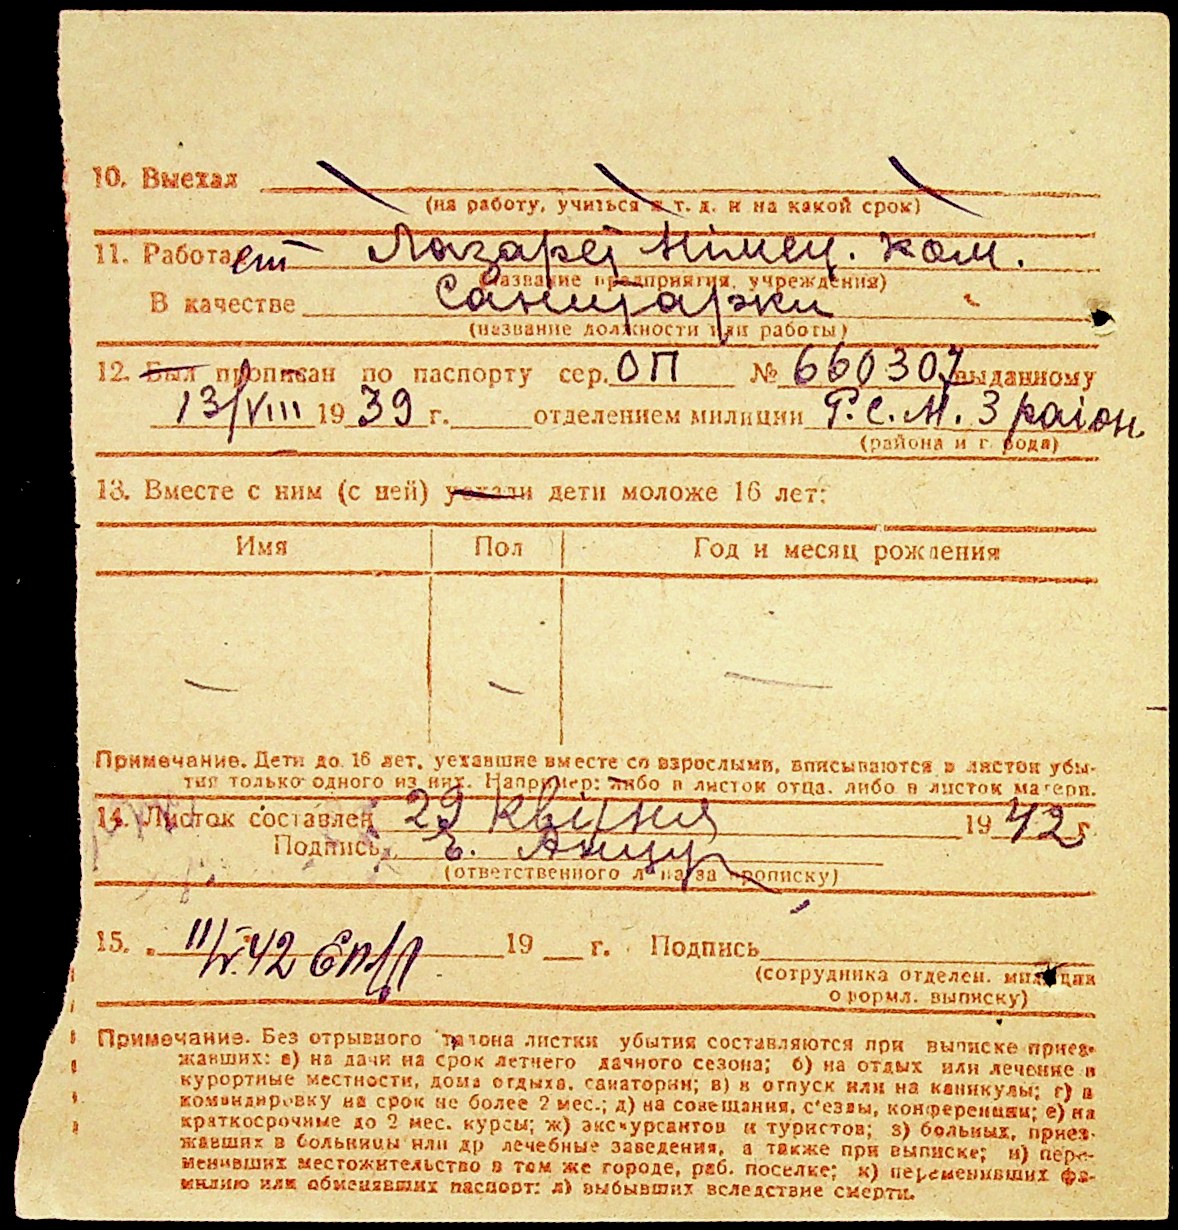 10. Выехал
(на работу, учиться и т. д. и на какой срок)
11. Работает Лазарет Німец. ком.
(название предприятия, учреждения)
В качестве Санитарки
(название должности или работы)
12. Был прописан по паспорту сер. ОП № 660307 выданному
13/VIII 1939 г. отделением милиции Р.С.М. 3 район
(района и города)
13. Вместе с ним (с ней) уехали дети моложе 16 лет:
Имя Пол Год и месяц рождения
Примечание. Дети до 16 лет, уехавшие вместе со взрослыми, вписываются в листок убы-
тия только одного из них. Например: либо в листок отца, либо в листок матери.
14. Листок составлен 29 квітня 1942 г.
Подпись
(ответственного лица за прописку)
15. 11/V.42 19 г. Подпись
(сотрудника отделен. милиции
оформл. выписку)
Примечание. Без отрывного талона листки убытия составляются при выписке приез-
жавших: а) на дачи на срок летнего дачного сезона; б) на отдых или лечение в
курортные местности, дома отдыха, санатории; в) в отпуск или на каникулы; г) в
командировку на срок не более 2 мес.; д) на совещания, с'езды, конференции; е) на
краткосрочные до 2 мес. курсы; ж) экскурсантов и туристов; з) больных, приез-
жавших в больницы или др лечебные заведения, а также при выписке; и) пере-
менивших местожительство в том же городе, раб. поселке; к) переменивших фа-
милию или обменявших паспорт; л) выбывших вследствие смерти.